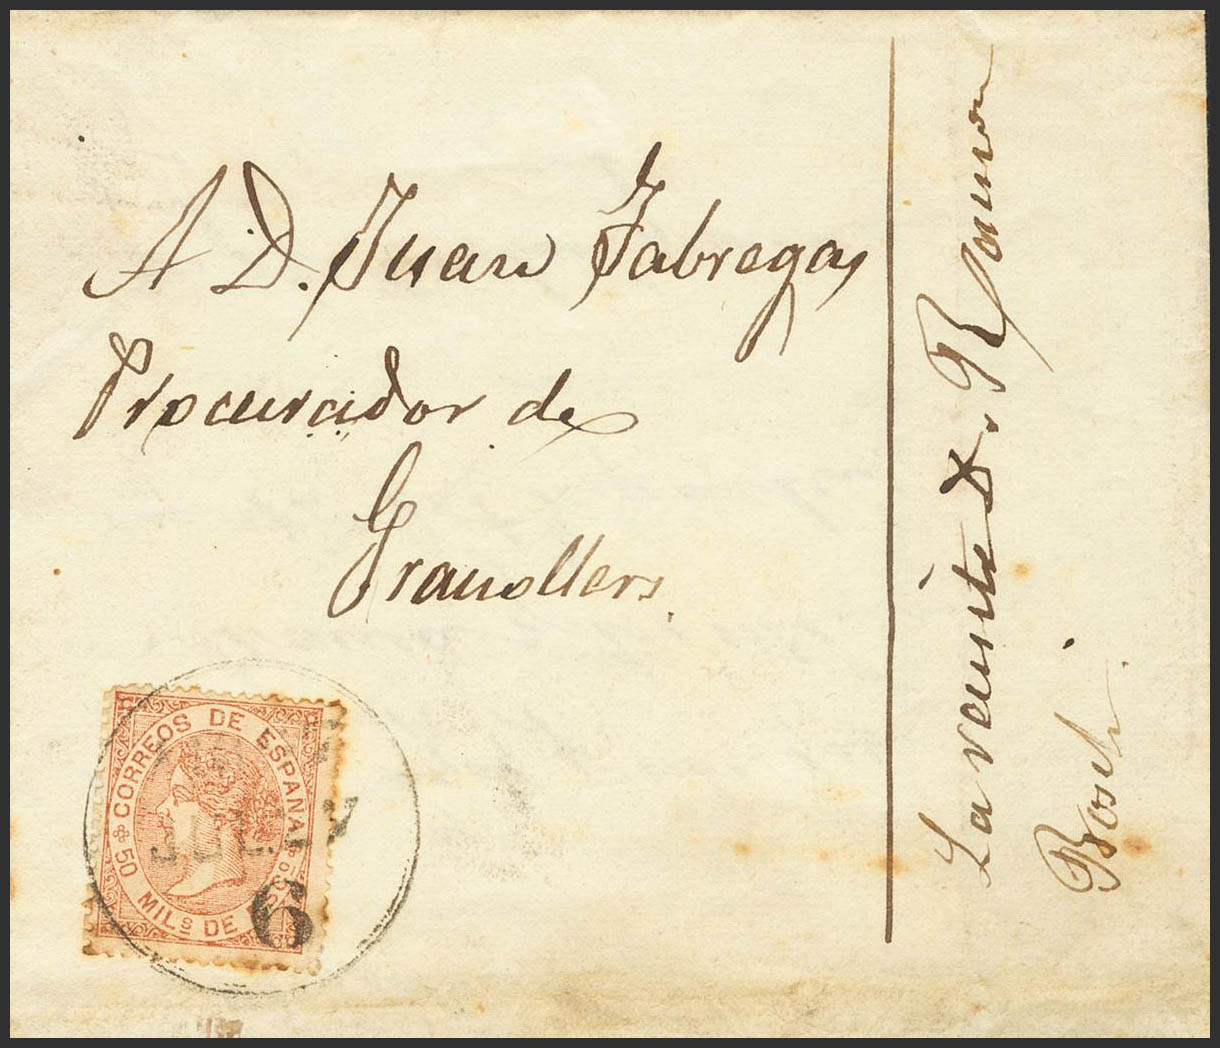 A D. Juan Fabregas
Procurador de
Granollers
La remite D. Ramon
Bosch
CORREOS DE ESPAÑA
50 MILS DE
6